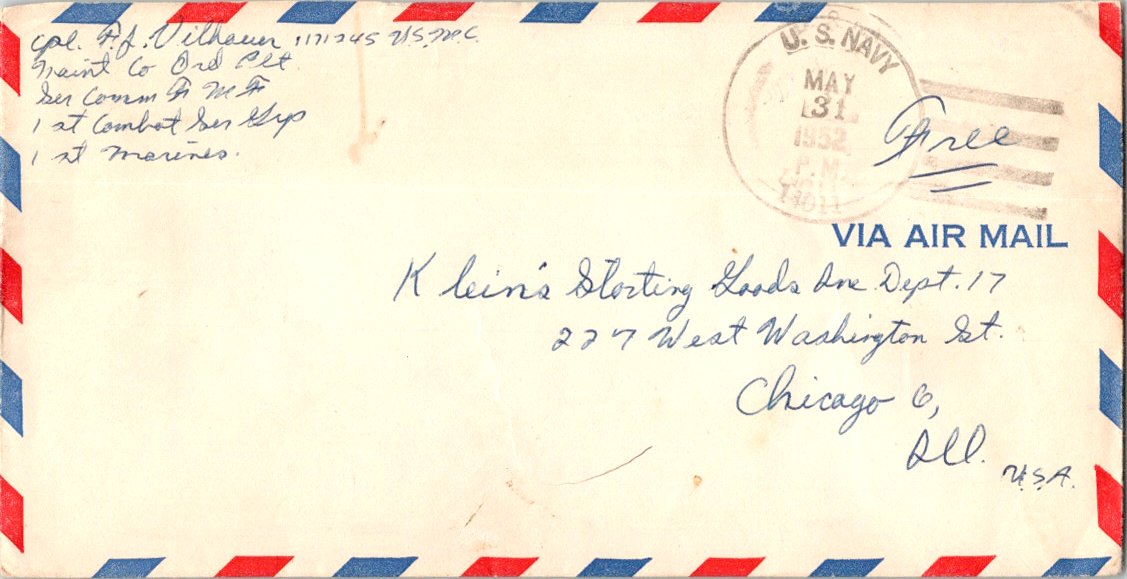 Cpl. F.J. Vilhauer 1171745 U.S.M.C.
Maint Co Ord Plt
Ser Comm F M F
1 st Combat Ser Grp
1 st Marines.
U.S. NAVY
MAY
31
1952
P.M.
14011
Free
VIA AIR MAIL
Klein's Storting Goods Inc Dept. 17
227 West Washington St.
Chicago 6,
Ill.
U.S.A.